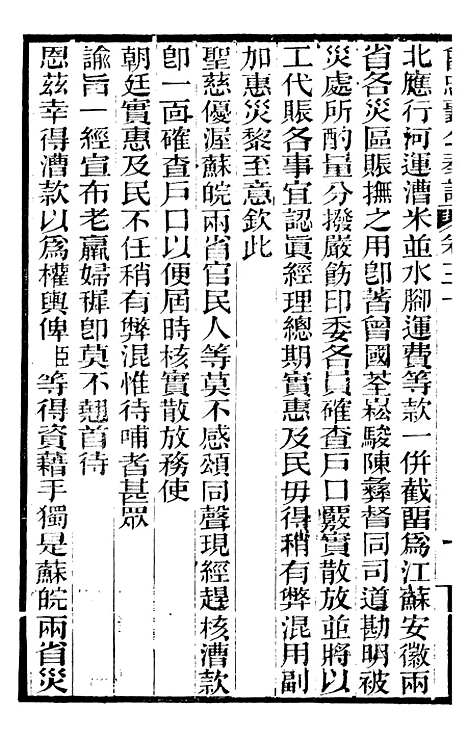 北應行河運漕米並水腳運費等款一併截畱爲江蘇安徽兩
省各災區賑撫之用卽著曾國荃崧駿陳彝督同司道勘明被
災處所酌量分撥嚴飭印委各員確查戶口覈實散放並將以
工代賑各事宜認眞經理總期實惠及民毋得稍有弊混用副
加惠災黎至意欽此
聖慈優渥蘇皖兩省官民人等莫不感頌同聲現經趕核漕款
卽一面確查戶口以便屆時核實散放務使
朝廷實惠及民不任稍有弊混惟待哺者甚眾
諭旨一經宣布老羸婦穉卽莫不翹首待
恩茲幸得漕款以爲權輿俾臣等得資藉手獨是蘇皖兩省災